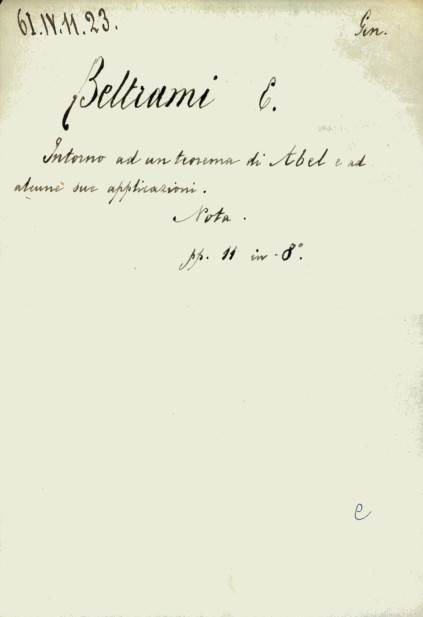 61.IV.11.23. Gen.
Beltrami E.
Intorno ad un teorema di Abel e ad
alcune sue applicazioni.
Nota.
pp. 11 in-8°.
e